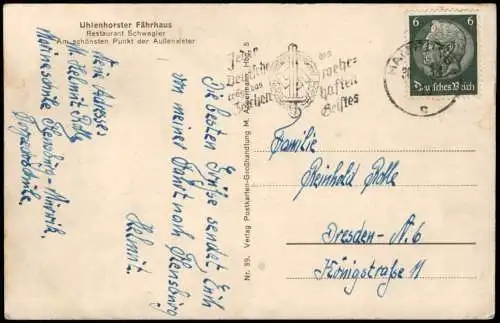 Uhlenhorster Fährhaus
Restaurant Schwagler
Am schönsten Punkt der Außenalster
Meine Adresse:
H. Helmut Rolle
Marineschule Flensburg-Mürwik
Torpedoschule.
Die besten Grüße sendet Euch
von meiner Fahrt nach Flensburg
Helmut.
Nr. 99. Verlag Postkarten-Großhandlung M. Hbg. 5
das
wehr-
haften
Geistes
HAM
6 6
Deutsches Reich
Familie
Reinhold Rolle
Dresden-N. 6
Königstraße 11